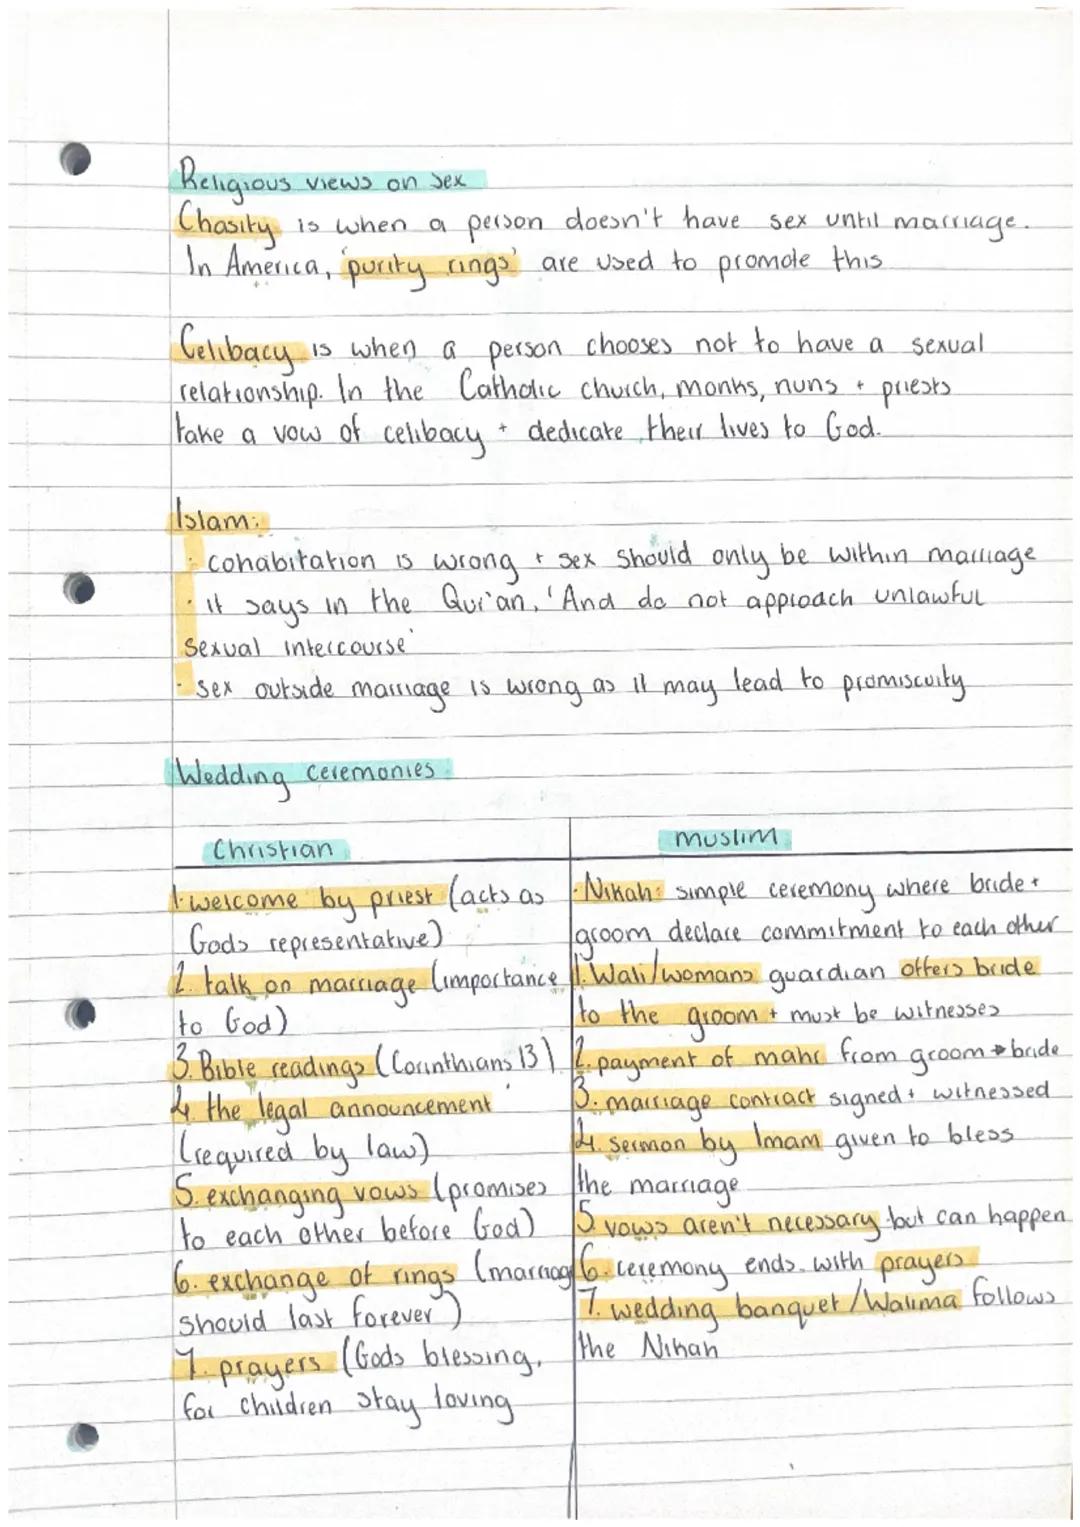 Religious views on sex
Chasity is when a person doesn't have sex until marriage.
In America, 'purity rings' are used to promote this
Celibacy is when a person chooses not to have a sexual
relationship. In the Catholic church, monks, nuns + priests
take a vow of celibacy + dedicate their lives to God.
Islam:
· cohabitation is wrong + sex should only be within marriage
· it says in the Qur'an, 'And do not approach unlawful
sexual intercourse'
· sex outside marriage is wrong as it may lead to promiscuity
Wedding ceremonies
Christian
1. welcome by priest (acts as
Gods representative)
2. talk on marriage (importance
to God)
3. Bible readings (Corinthians 13)
4. the legal announcement
(required by law)
5. exchanging vows (promises
to each other before God)
6. exchange of rings (marriag
should last forever)
7. prayers (Gods blessing,
for children stay loving
muslim
· Nikah: simple ceremony where bride +
groom declare commitment to each other
1. Wali/womans guardian offers bride
to the groom + must be witnesses
2. payment of mahr from groom → bride
3. marriage contract signed + witnessed
4. sermon by Imam given to bless
the marriage
5. vows aren't necessary but can happen
6. ceremony ends with prayers
7. wedding banquet/Walima follows
the Nikah